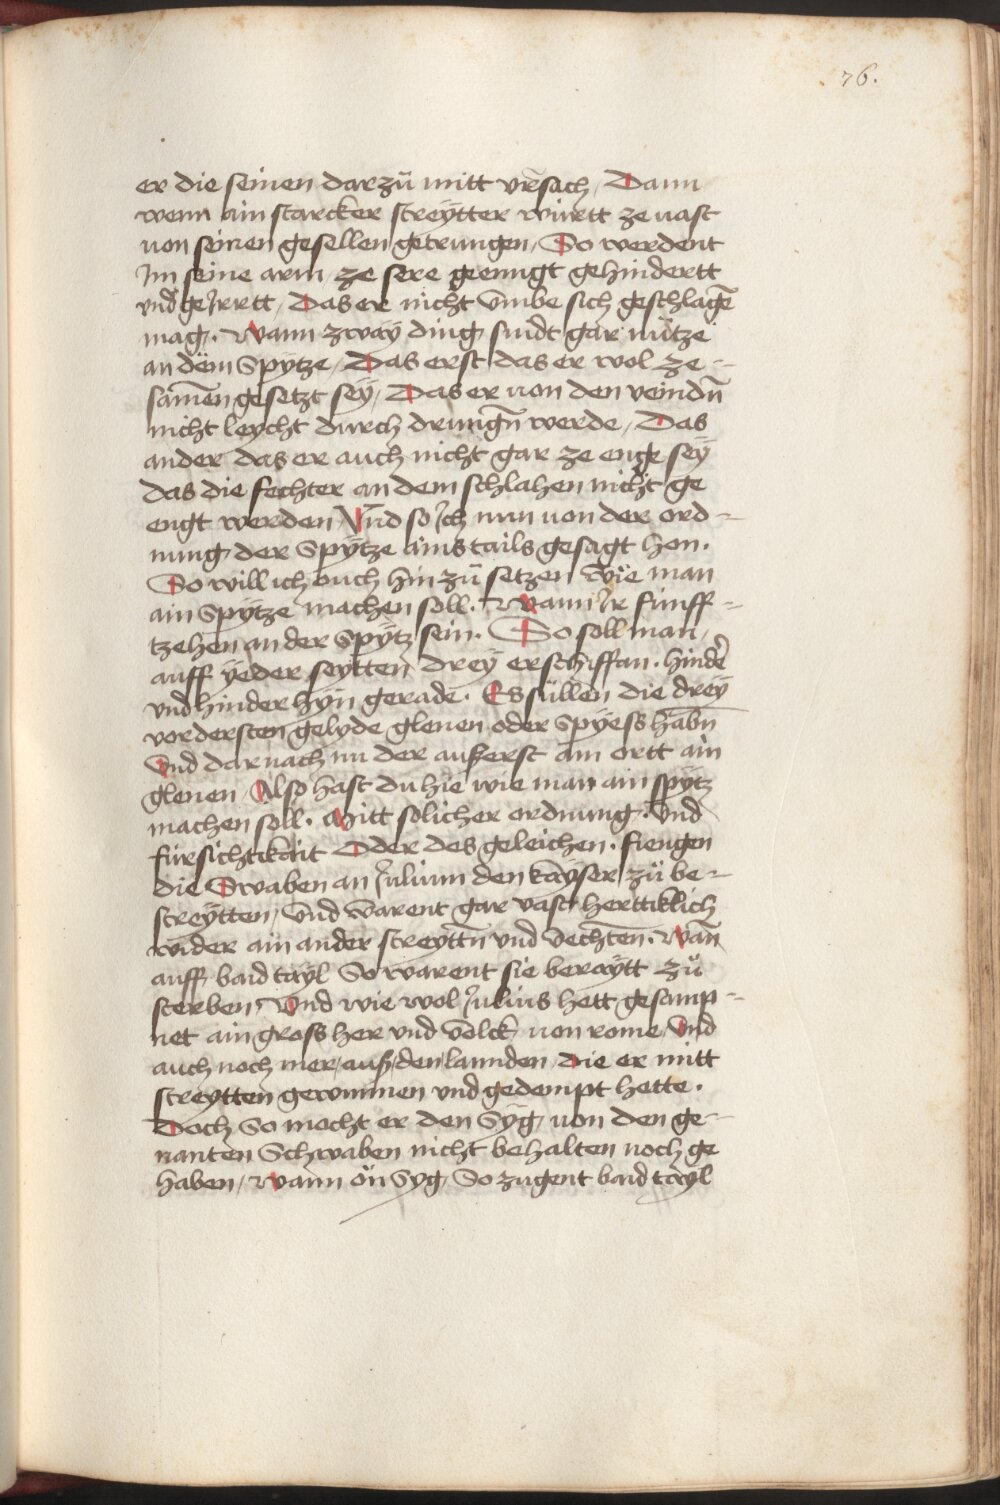 76.
er die seinen darzů mitt vrsach / Dann
wenn ain starcker streÿtter wirtt ze vast
von seinen gesellen getrungen / So werdent
Im seine arm ze sere geengt gehindertt
vnd geIrrtt / Das er nicht vmbe sich geschlagē
mag. Wann zwaÿ ding sindt gar nütze
an dem Spÿtze / Das erst das er wol ze -
samen gesetzt seÿ / Das er von den veindn̄
nicht leycht durch drungn̄ werde / Das
ander das er auch nicht gar ze enge seÿ
das die fechter an dem schlahen nicht ge
engt werden Vnd so Ich nun von der ord -
nung der Spÿtze ains tails gesagt hon.
So will ich ouch hin zů setzen wie man
ain Spÿtze machen soll. Wann Ir funff -
tzehen an der Spÿtz sein. So soll man
auff ÿeder seÿtten dreÿ erschiffan. hinder
vnd hinder hÿn gerade. Es süllen die dreÿ
vordersten gelyde glenen oder Spÿess habn̄
Vnd darnach nu der ausserst am ortt ain
glenen Also hast du hie wie man ain spÿtz
machen soll. Mitt solicher ordnung. Vnd
fürsichtikait Oder des geleichen. fiengen
die Swaben an Julium den kaÿser zů be -
streÿtten / Vnd warent gar vast herttiklich
wider ain ander streÿttn̄ vnd vechten. Wan̄
auff baid taÿl So warent sie beraÿtt zů
sterben / Vnd wie wol Julius hett gesamp -
net ain gross her vnd volck von rome Vnd
auch noch mer / auß / den lannden die er mitt
streÿtten gewunnen vnd gedempt hette.
Doch So mocht er den Sÿg von den ge -
nanten Schwaben nicht behalten noch ge
haben / Wann on Syg So zugent baid taÿl